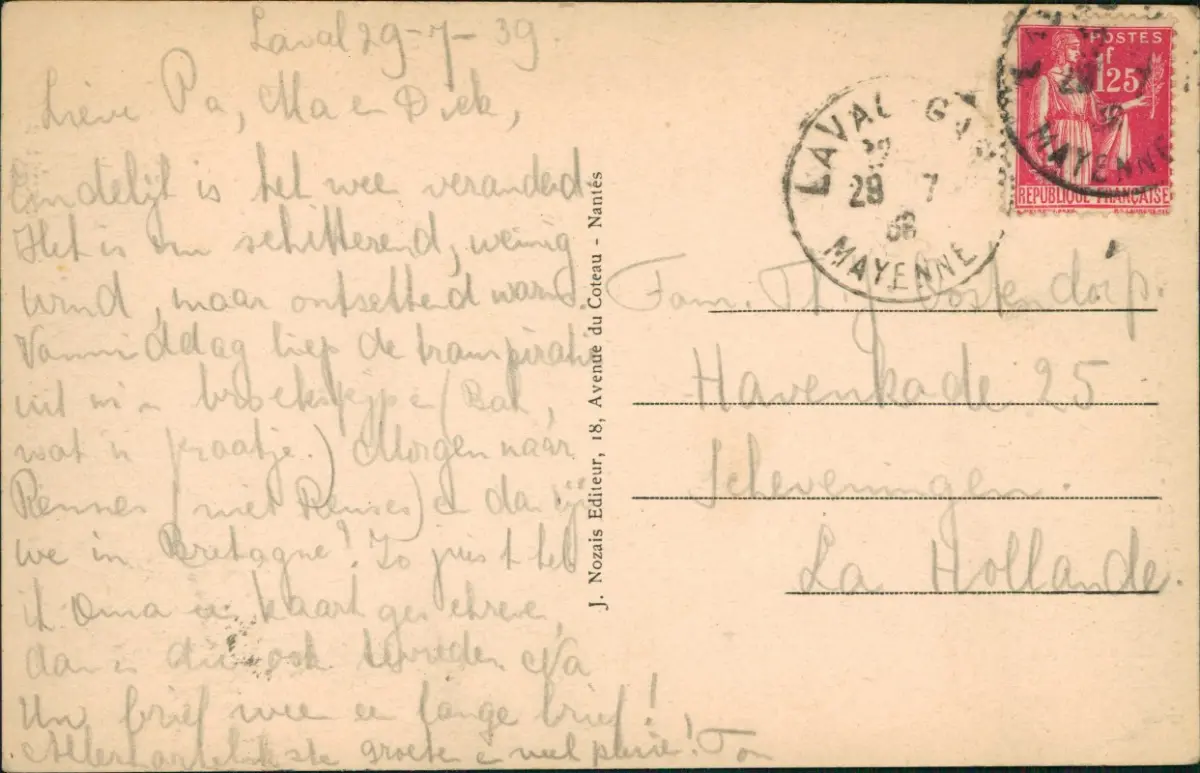 Laval 29-7-39.
Lieve Pa, Ma en Dick,
Eindelijk is het weer veranderd
Het is nu schitterend, weinig
wind, maar ontsettend warm.
Vanmiddag liep de transpiratie
uit m'n broekspijpen (Bah,
wat 'n praatje.) Morgen naar
Rennes (niet Reuses) en dan zijn
we in Bretagne! Zo juist heb
ik Oma een kaart geschreven,
dan is die ook tevreden Na
Uw brief weer een lange brief!
Allerhartelijkste groeten en veel plezier! Ton
J. Nozais Editeur, 18, Avenue du Coteau - Nantés
POSTES
1f25
REPUBLIQUE FRANÇAISE
LAVAL
29 7
MAYENNE
MAYENNE
Fam. Th. Oostendorp.
Havenkade 25
Scheveningen.
La Hollande.